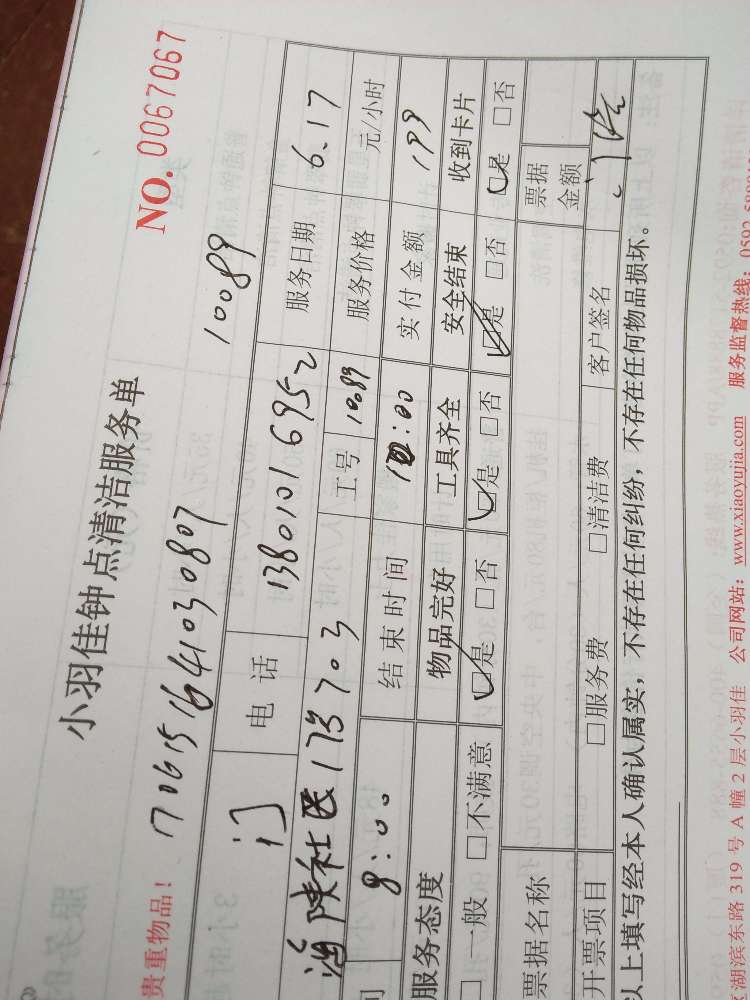 小羽佳钟点清洁服务单
NO. 0067067
贵重物品! 1706151641030807 10089
门 电话 13801016952 服务日期 6.17
社区 173703 工号 10089 服务价格 元/小时
间 8:00 结束时间 :00 实付金额 199
服务态度 物品完好 工具齐全 安全结束 收到卡片
□一般 □不满意 □是 □否 □是 □否 □是 □否 □是 □否
票据名称 票据金额
开票项目 □服务费 □清洁费 客户签名 门
以上填写经本人确认属实,不存在任何纠纷,不存在任何物品损坏。
湖滨东路 319 号 A 幢 2 层小羽佳 公司网站: www.xiaoyujia.com 服务监督热线: 0592